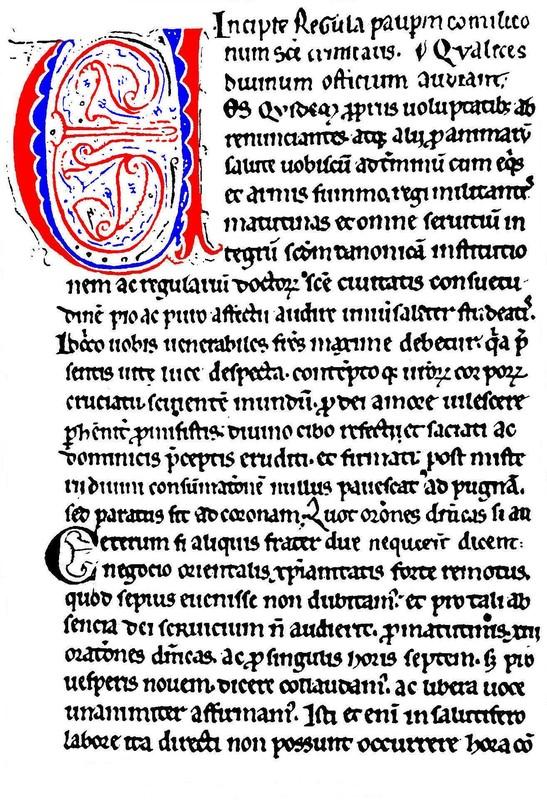 Incipit Regula paupm comilico
num sce trinitatis. Qualit es
diuinum officium audiant.
OS Quidem propriis uoluptatib; ab
renunciantes atq; alii p animarū
salute uobiscū ad t̄minū cum eq̄s
et armis summo regi militantes
matutinas et omne seruitiū in
tegrū scdm canonicā institutio
nem ac regulariū doctor sce ciuitatis consuetu
dinē pio ac puro affectu audire uniūsaliter studeatis.
Idcirco uobis uenerabiles fr̄s maxime debetur. q̄a p̄
sentis uite luce despecta. contēpto q; uror corpor
cruciatu sciuientē mundū. p dei amore uilescere
phēnit̄ p̄mi sistis. diuino cibo refecti et saciati ac
dominicis p̄ceptis eruditi. et firmati post miste
rii diuini consūmationē nullus pauescat ad pugnā.
sed paratus sit ad coronam. Quot orōnes dn̄icas si au
Ceterum si aliquis frater due nequeerit dicent:
negocio orientalis xp̄ianitatis forte remotus.
quod sepius euenisse non dubitam̄. et pro tali ab
sencia dei seruicium n̄ audierit. p matutinis. xiii
oratōnes dn̄icas. ac p singulis horis septem. s; pro
uesperis nouem. dicere collaudam̄. ac libera uoce
unanimiter affirmam̄. Isti et eni in salutifero
labore ita directi non possunt occurrere hora cō